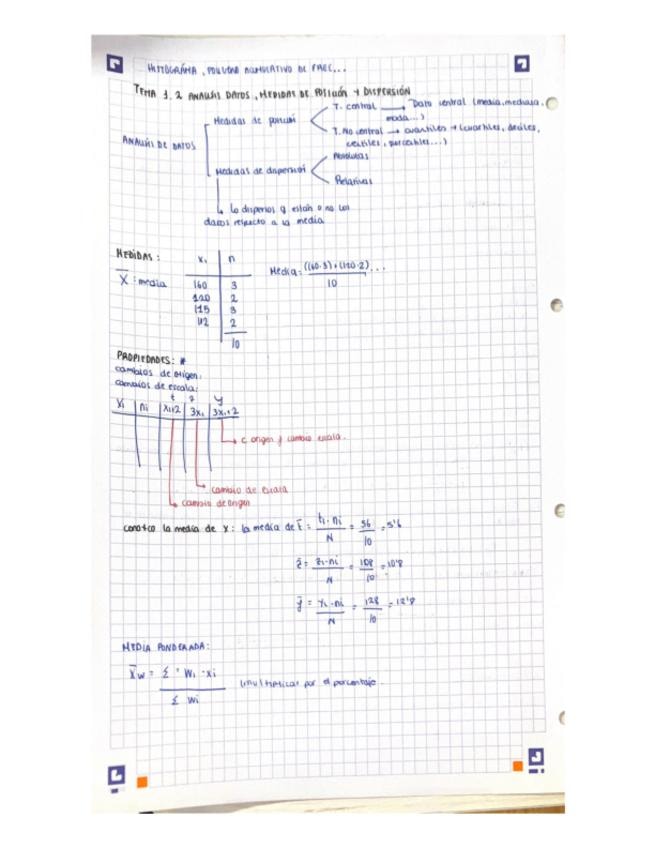 HISTOGRAMA, POLIGONO ACUMULATIVO DE FREC...
TEMA 1.2 ANALISIS DATOS, MEDIDAS DE POSICIÓN Y DISPERSIÓN
ANALISIS DE DATOS
Medidas de posicion
T. central → Dato central (media, mediana, moda...)
T. No central → cuantiles → (cuartiles, deciles, percentiles...)
Medidas de dispersion
Absolutas
Relativas
↳ lo dispersos q están o no los
datos respecto a la media
MEDIDAS:
X̅: media
xi n
160 3
120 2
115 3
112 2
10
Media = ((160·3)+(120·2)...
10
PROPIEDADES: *
cambios de origen:
cambios de escala:
t z y
Xi ni xi+2 3xi 3xi+2
c. origen y cambio escala.
cambio de escala
cambio de origen
conozco la media de x: la media de t̅ = ti·ni / N = 56 / 10 = 5'6
z̅ = zi·ni / N = 108 / 10 = 10'8
y̅ = yi·ni / N = 128 / 10 = 12'8
MEDIA PONDERADA:
X̅w = Σ · Wi · xi
Σ Wi
(multiplicar por el porcentaje.